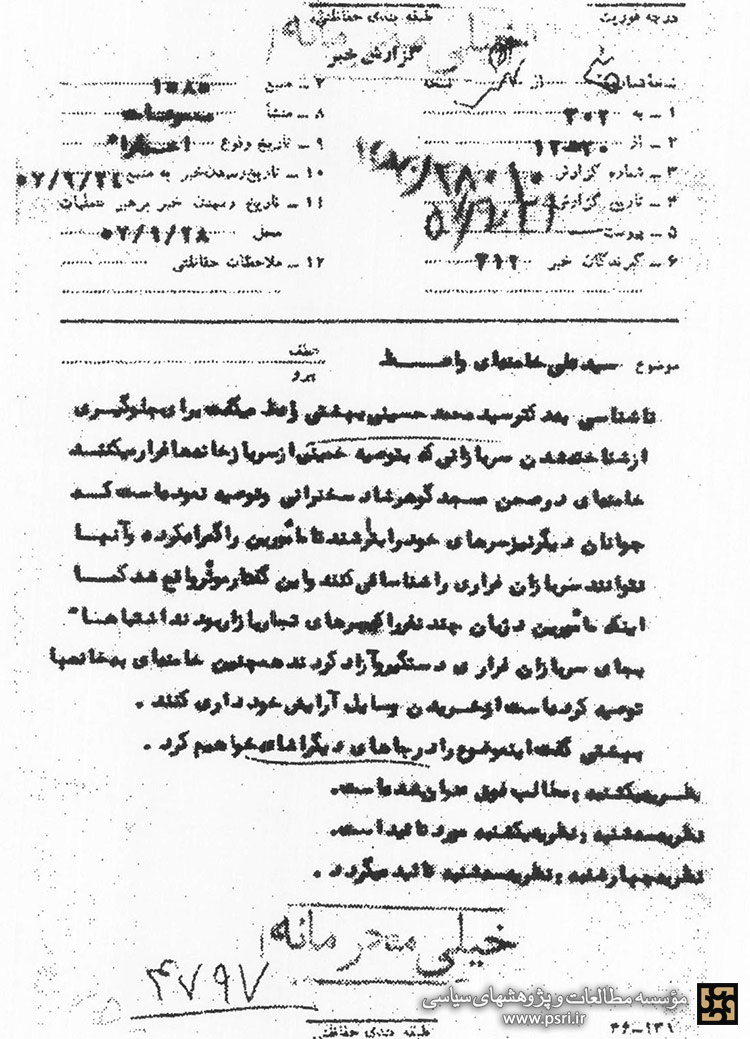 درجه فوریت
طبقه بندی حفاظتی
خیلی محرمانه
گزارش خبر
از نسخه
۱ ـ به ۳۰۲
۲ ـ از
۳ ـ شماره گزارش
۴ ـ تاریخ گزارش
۵ ـ پیوست
۶ ـ گیرندگان خبر ۳۱۲
۷ ـ منبع
۸ ـ منشأ
۹ ـ تاریخ وقوع
۱۰ ـ تاریخ رسیدن خبر به منبع
۱۱ ـ تاریخ رسیدن خبر برهبر عملیات
محل ۵۲/۹/۲۸
۱۲ ـ ملاحظات حفاظتی
موضوع سیدعلی خامنه‌ای واعظ
عطف
پیرو
ناشناسی بدکترسیدمحمد حسینی بهشتی واعظ میگفت برای جلوگیری
ازشناخته‌شدن سربازانی که بتوصیه خمینی ازسربازخانه‌ها فرارمیکنند
خامنه‌ای درصحن مسجدگوهرشاد سخنرانی وتوصیه نموده‌است که
جوانان دیگرنیزسرهای خودرابتراشند تا مأمورین راگمراه‌کرده وآنها
نتوانند سربازان فراری راشناسائی کنند واین گفتارمؤثرواقع شدکما
اینکه مأمورین درآن چند نفرراکه‌پسرهای تجاربازاربودند اشتباهاً
بجای سربازان فراری دستگیروآزادکردند همچنین خامنه‌ای به‌خانمها
توصیه کرده‌است ازخریدن وسایل آرایش خودداری کنند .
بهشتی گفت اینموضوع رادرجاهای دیگرافشای خواهیم کرد .
نظریه‌یکشنبه : مطالب فوق عنوان‌شده‌است.
نظریه‌سه‌شنبه : نظریه‌یکشنبه مورد تائیداست.
نظریه‌چهارشنبه : نظریه‌سه‌شنبه تائید میگردد .
خیلی محرمانه
۴۷۹۷
طبقه بندی حفاظتی
۳۶-۱۳۱
مؤسسه مطالعات و پژوهشهای سیاسی
www.psri.ir